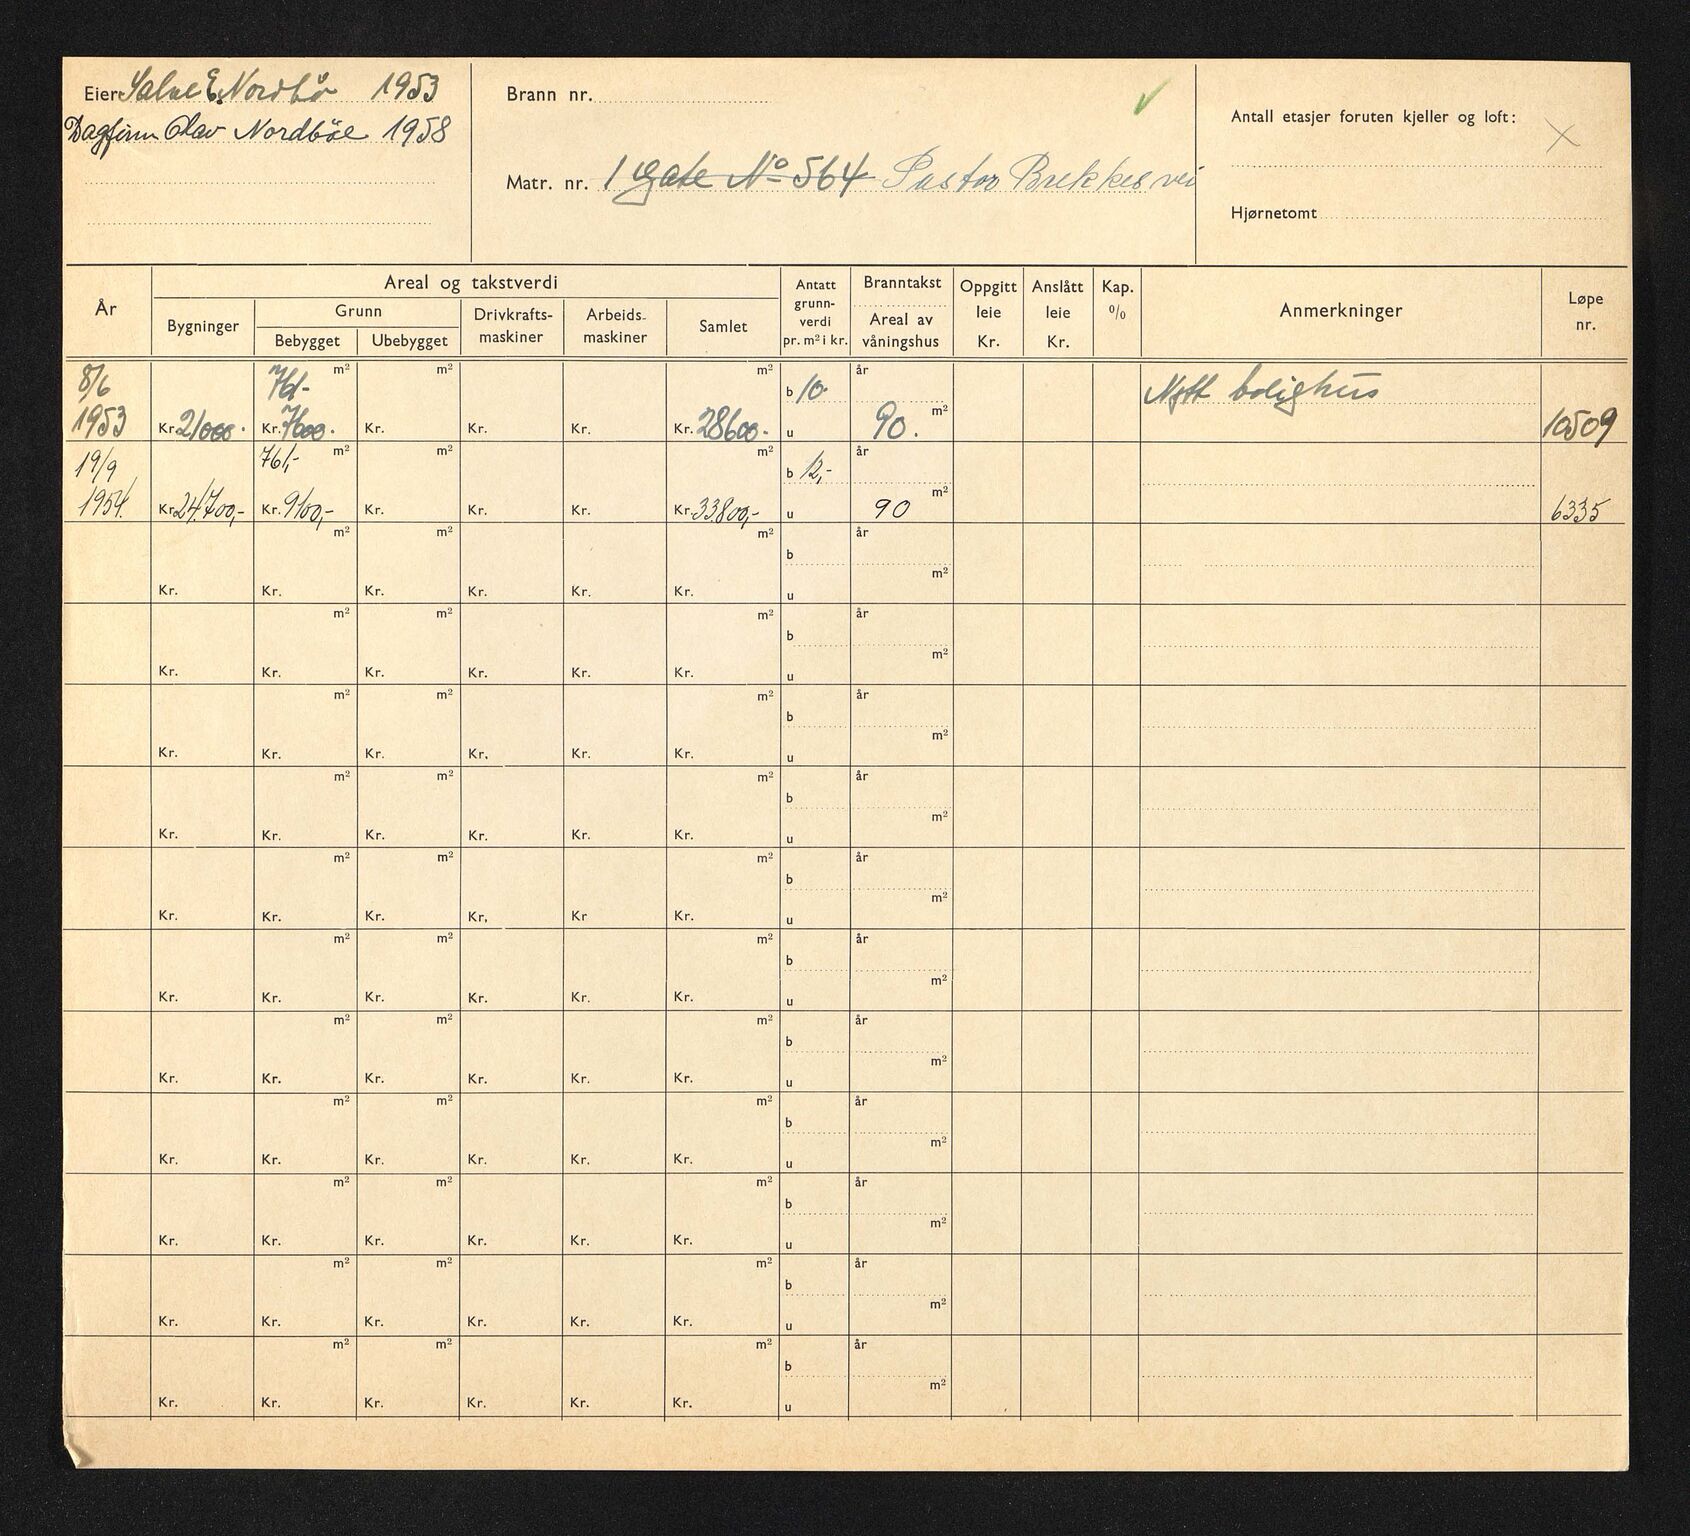 Eier Salve E. Nordbö 1953
Dagfinn Olav Nordböe 1958
Brann nr.
Matr. nr. 1 Gate No 564 Pastor Brekkes vei
Antall etasjer foruten kjeller og loft: X
Hjørnetomt
År
Areal og takstverdi
Bygninger
Grunn
Bebygget
Ubebygget
Drivkrafts-
maskiner
Arbeids-
maskiner
Samlet
Antatt
grunn-
verdi
pr. m² i kr.
Branntakst
Areal av
våningshus
Oppgitt
leie
Kr.
Anslått
leie
Kr.
Kap.
%
Anmerkninger
Løpe
nr.
8/6 761- m² m² m² b 10- år Nytt bolighus
1953 Kr. 21000.- Kr. 7600.- Kr. Kr. Kr. Kr. 28600.- u 90. m² 10509
19/9 761,- m² m² m² b 12,- år
1954. Kr. 24.700,- Kr. 9100,- Kr. Kr. Kr. Kr. 33.800,- u 90 m² 6335
m² m² m² b år
Kr. Kr. Kr. Kr. Kr. Kr. u m²
m² m² m² b år
Kr. Kr. Kr. Kr. Kr. Kr. u m²
m² m² m² b år
Kr. Kr. Kr. Kr. Kr. Kr. u m²
m² m² m² b år
Kr. Kr. Kr. Kr. Kr. Kr. u m²
m² m² m² b år
Kr. Kr. Kr. Kr, Kr Kr. u m²
m² m² m² b år
Kr. Kr. Kr. Kr. Kr. Kr. u m²
m² m² m² b år
Kr. Kr. Kr. Kr. Kr. Kr. u m²
m² m² m² b år
Kr. Kr. Kr. Kr. Kr. Kr. u m²
m² m² m² b år
Kr. Kr. Kr. Kr. Kr. Kr. u m²
m² m² m² b år
Kr. Kr. Kr. Kr. Kr. Kr. u m²
m² m² m² b år
Kr. Kr. Kr. Kr. Kr. Kr. u m²